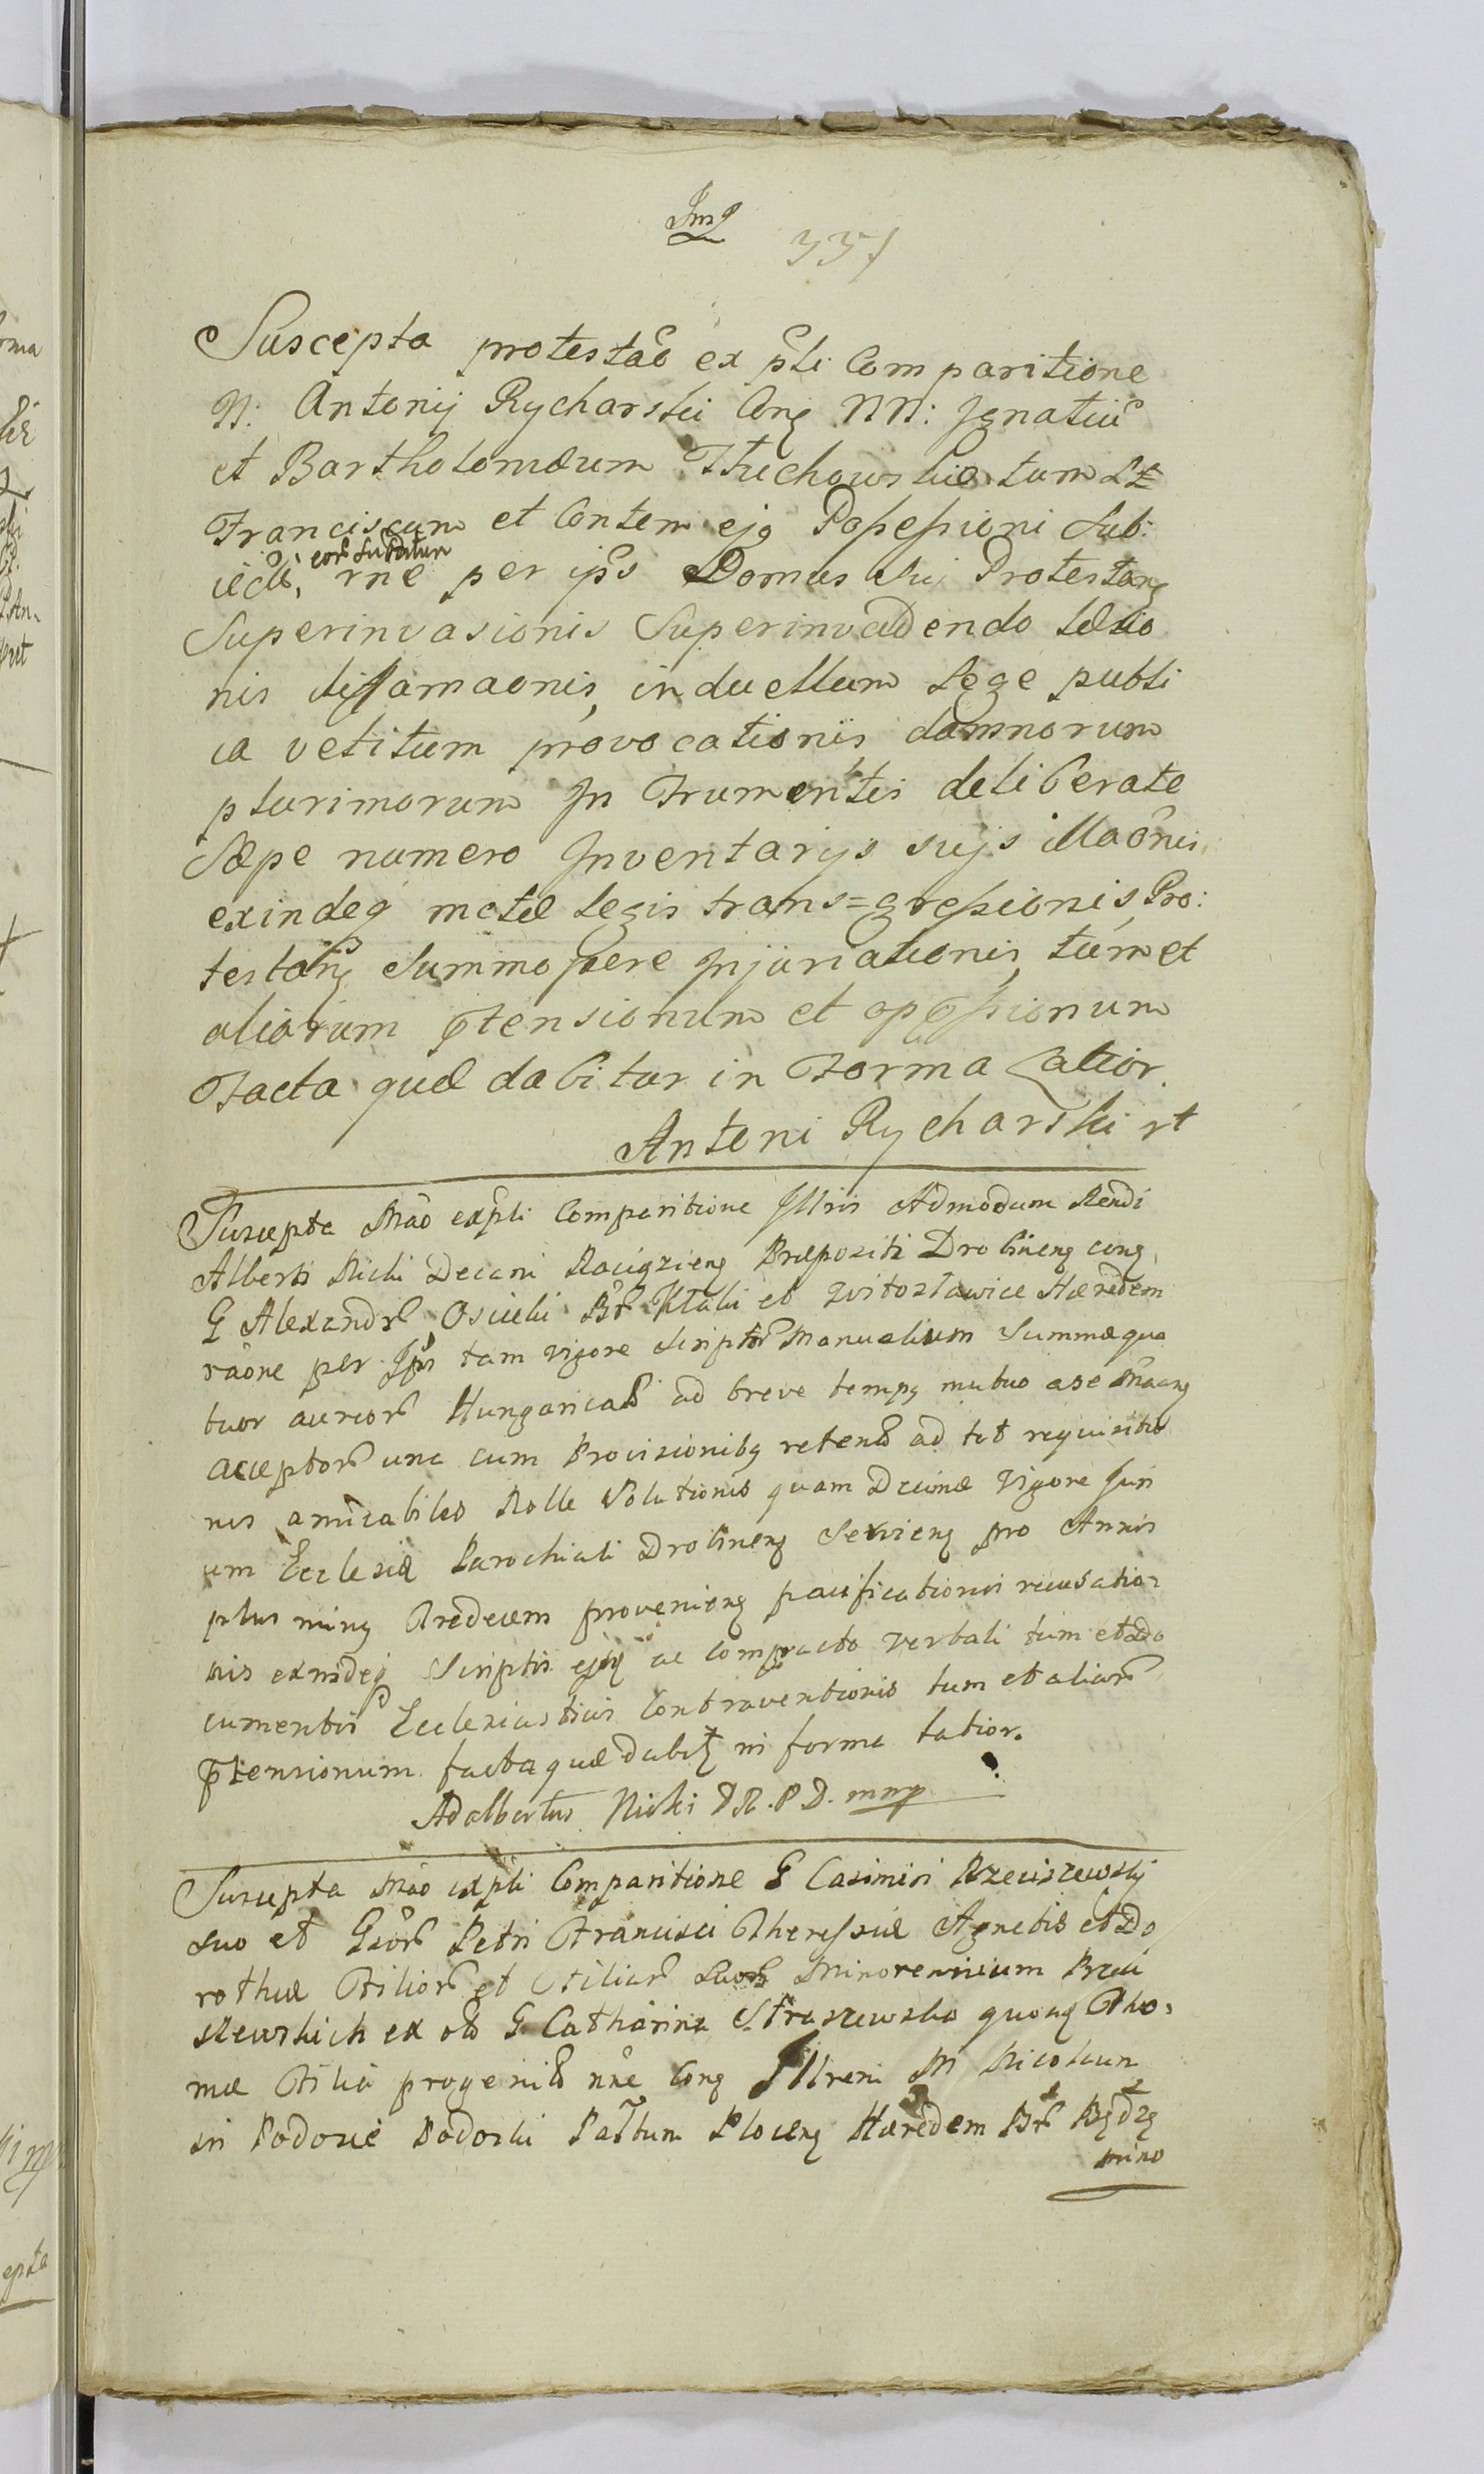 Img 351
Suscepta protestao ex pli Comparitione
N: Antonij Rycharski Cong NN: Ignatiu
et Bartholomæum Tłuchowskie tum Lt
Franciscum et Contem ejg Possessioni Sub:
iectæ, eor subditum rne per ips Domus sui Protestang
Superinvasionis Superinvadendo læsio
nis difamaonis, in duellum Lege publi
ca vetitum provocationis damnorum
plurimorum In Frumentis deliberate
Sæpe numero Inventarijs sujs illaonis,
exindeq metæ Legis trans=gressionis, Pro:
testang Summopere Injuriationis, tum et
aliorum ptensionum et opessionum
Facta quæ dabitur in Forma Latior.
Antoni Rycharski rt
Suscepta Mao expli Comparitione Illris Admodum Rendi
Alberti Nicki Decani Raciązieng Præpositi Drobineng cong
G Alexandr Osiecki Br Ktaki et Witosławice Hæredem
raone per Ips tam vigore Scriptor Manualium Summæ qua
tuor aureor Hungarical ad breve tempg mutuo a se Maang
acceptor una cum Provisionibg reten ad tot requisitio
nes amicabiles Nolle Solutionis quam Decimæ vigore Juri
um Ecclesiæ Parochiali Drobineng Servieng pro Annis
plus ming Tredecem provenieng pacificationis recusatio
nis exindeq Scriptis ejg ac compacto verbali tum et Do
cumentis Ecclesiasticis Contraventionis tum et aliar
ptensionum facta quæ dabit in forma latior.
Adalbertus Nicki D R. P D. mmp
Suscepta Mao expli Comparitione G Casimiri Rzeciszewskj
suo et Gsor Petri Francisci Theressiæ Agnetis et Do
rotheæ Filior et Filiar Suor Minorennium Rzeci
szewskich ex olo G Catharina Straszewska quong Tho:
mæ Filia progenil nne Cong Illrem M Nicolaum
in Podosie Podoski Pattum Ploceng Hæredem Br Bądzg
mino